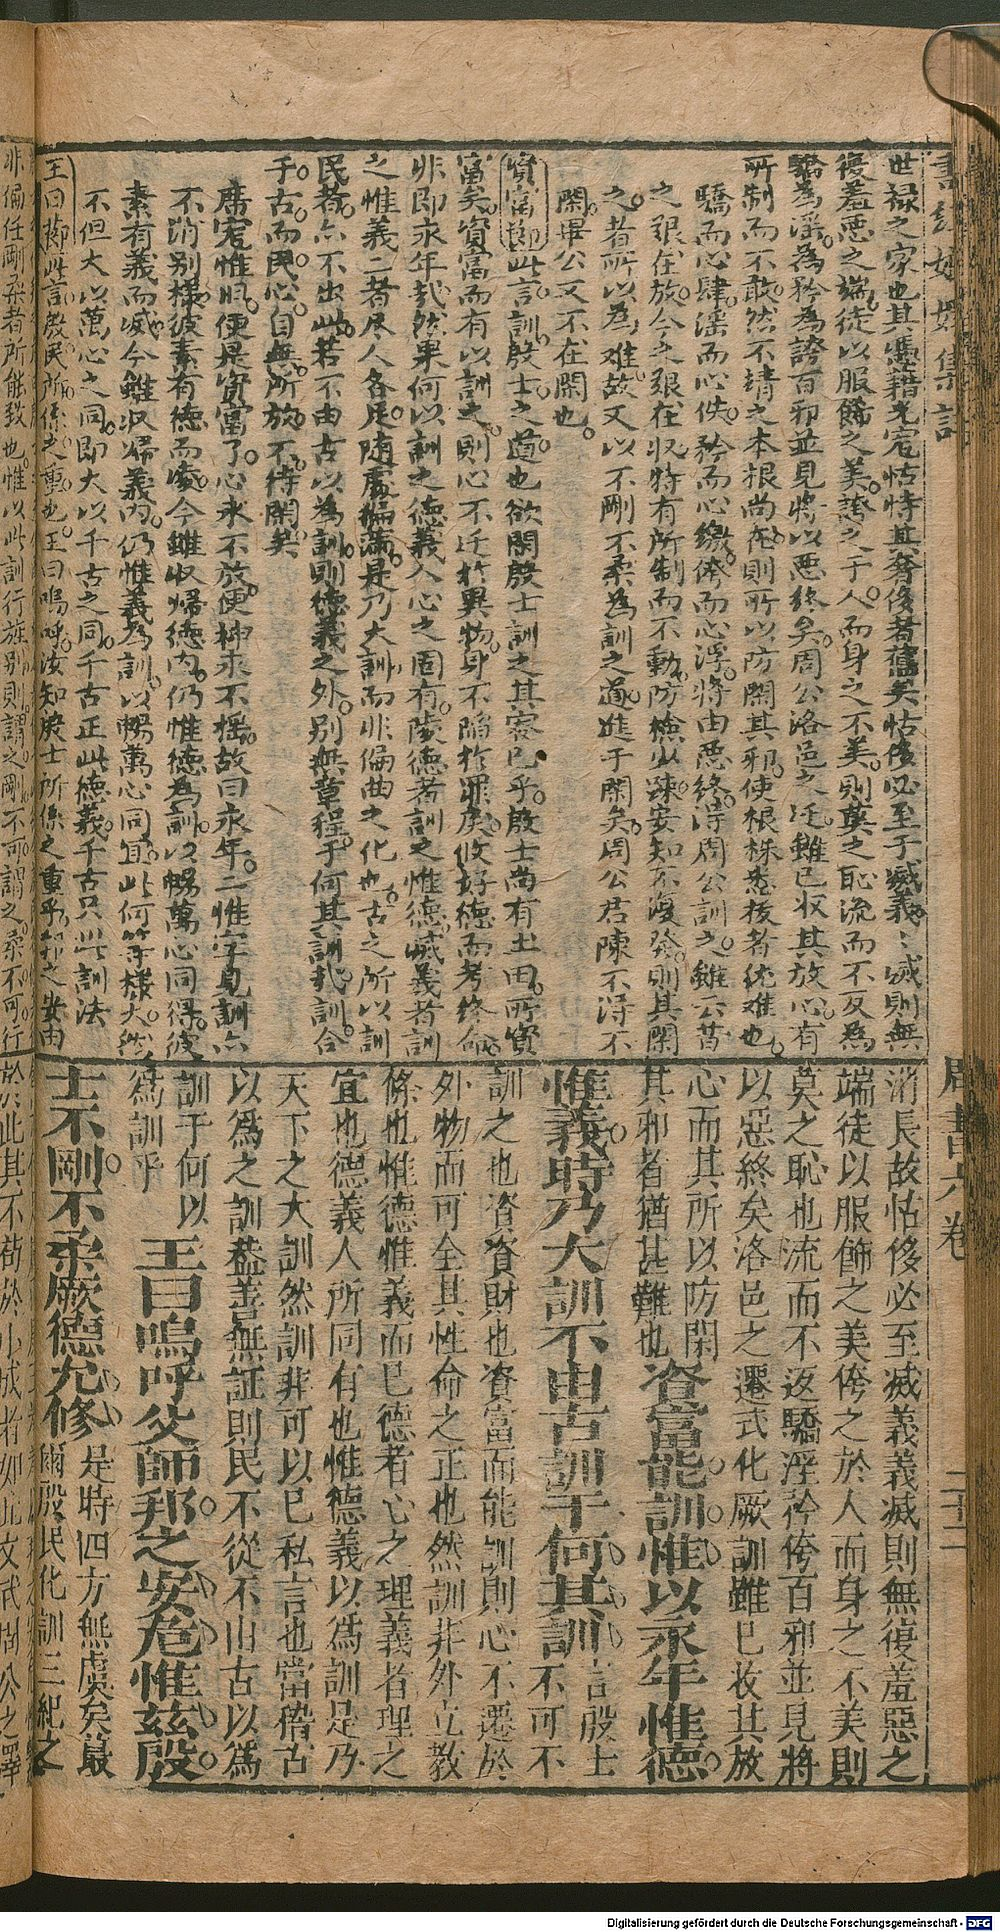 世禄之家也其憑藉光寵怙恃其奢侈者舊矣怙侈必至于滅義〻滅則無
復羞惡之端徒以服飾之美誇之于人而身之不美則莫之恥流而不反為
驕為淫為矜為誇百邪並見將以惡終矣周公洛邑之迁雖已收其放心有
所制而不敢然不靖之本根尚在則所以防閑其邪使根株悉拔者犹难也
驕而心肆淫而心佚矜而心侉而心浮將由惡終得周公訓之雖云昔
之艰在放今之艰在收特有所制而不動防檢少踈安知不復發則其閑
之者所以為难故又以不剛不柔為訓之道進于閑矣周公君陳不得不
閑畢公又不在閑也
資富節此言訓殷士之道也欲閑殷士訓之其容已乎殷士尚有土田所資
富矣資富而有以訓之則心不迁於異物身不陷於罪戾攸好德而考終命
非即永年哉然果何以訓之德義人心之固有陵德者訓之惟德滅義者訓
之惟義二者尽人各足随處徧滿是乃大訓而非偏曲之化也古之所以訓
民者亦不出此若不由古以為訓則德義之外别無章程于何其訓哉訓合
于古而民心自無所放不待閑矣
席寵惟旧便是資富了心永不放便神永不摇故曰永年二惟字見訓亦
不消别様彼素有德而凌今雖収帰德内仍惟德為訓以暢萬心同得彼
素有義而滅今雖収帰義内仍惟義為訓以暢萬心同宜此何等様大然
不但大以萬心之同即大以千古之同千古正此德義千古只此訓法
王曰節此言殷民所係之重也王曰嗚呼汝知殷士所係之重乎邦之安由
消長故怙侈必至滅義義滅則無復羞惡之
端徒以服飾之美侉之於人而身之不美則
莫之恥也流而不返驕淫矜侉百邪並見將
以惡終矣洛邑之遷式化厥訓雖已收其放
心而其所以防閑
其邪者猶甚難也
資富能訓惟以永年惟德
惟義時乃大訓不由古訓于何其訓
言殷士
不可不
訓之也資資財也資富而能訓則心不遷於
外物而可全其性命之正也然訓非外立教
條也惟德惟義而已德者心之理義者理之
宜也德義人所同有也惟德義以為訓是乃
天下之大訓然訓非可以已私言也當稽古
以為之訓葢善無証則民不從不由古以為
訓于何以
為訓乎
王曰嗚呼父師邦之安危惟茲殷
士不剛不柔厥德允修
是時四方無虞矣蕞
爾殷民化訓三紀之
周書六卷
二十二
非偏任剛柔者所能致也惟以此訓行旌别則謂之剛不可謂之柔不可行
於此其不苟於小成者如此文武周公之澤
Digitalisierung gefördert durch die Deutsche Forschungsgemeinschaft - DFG